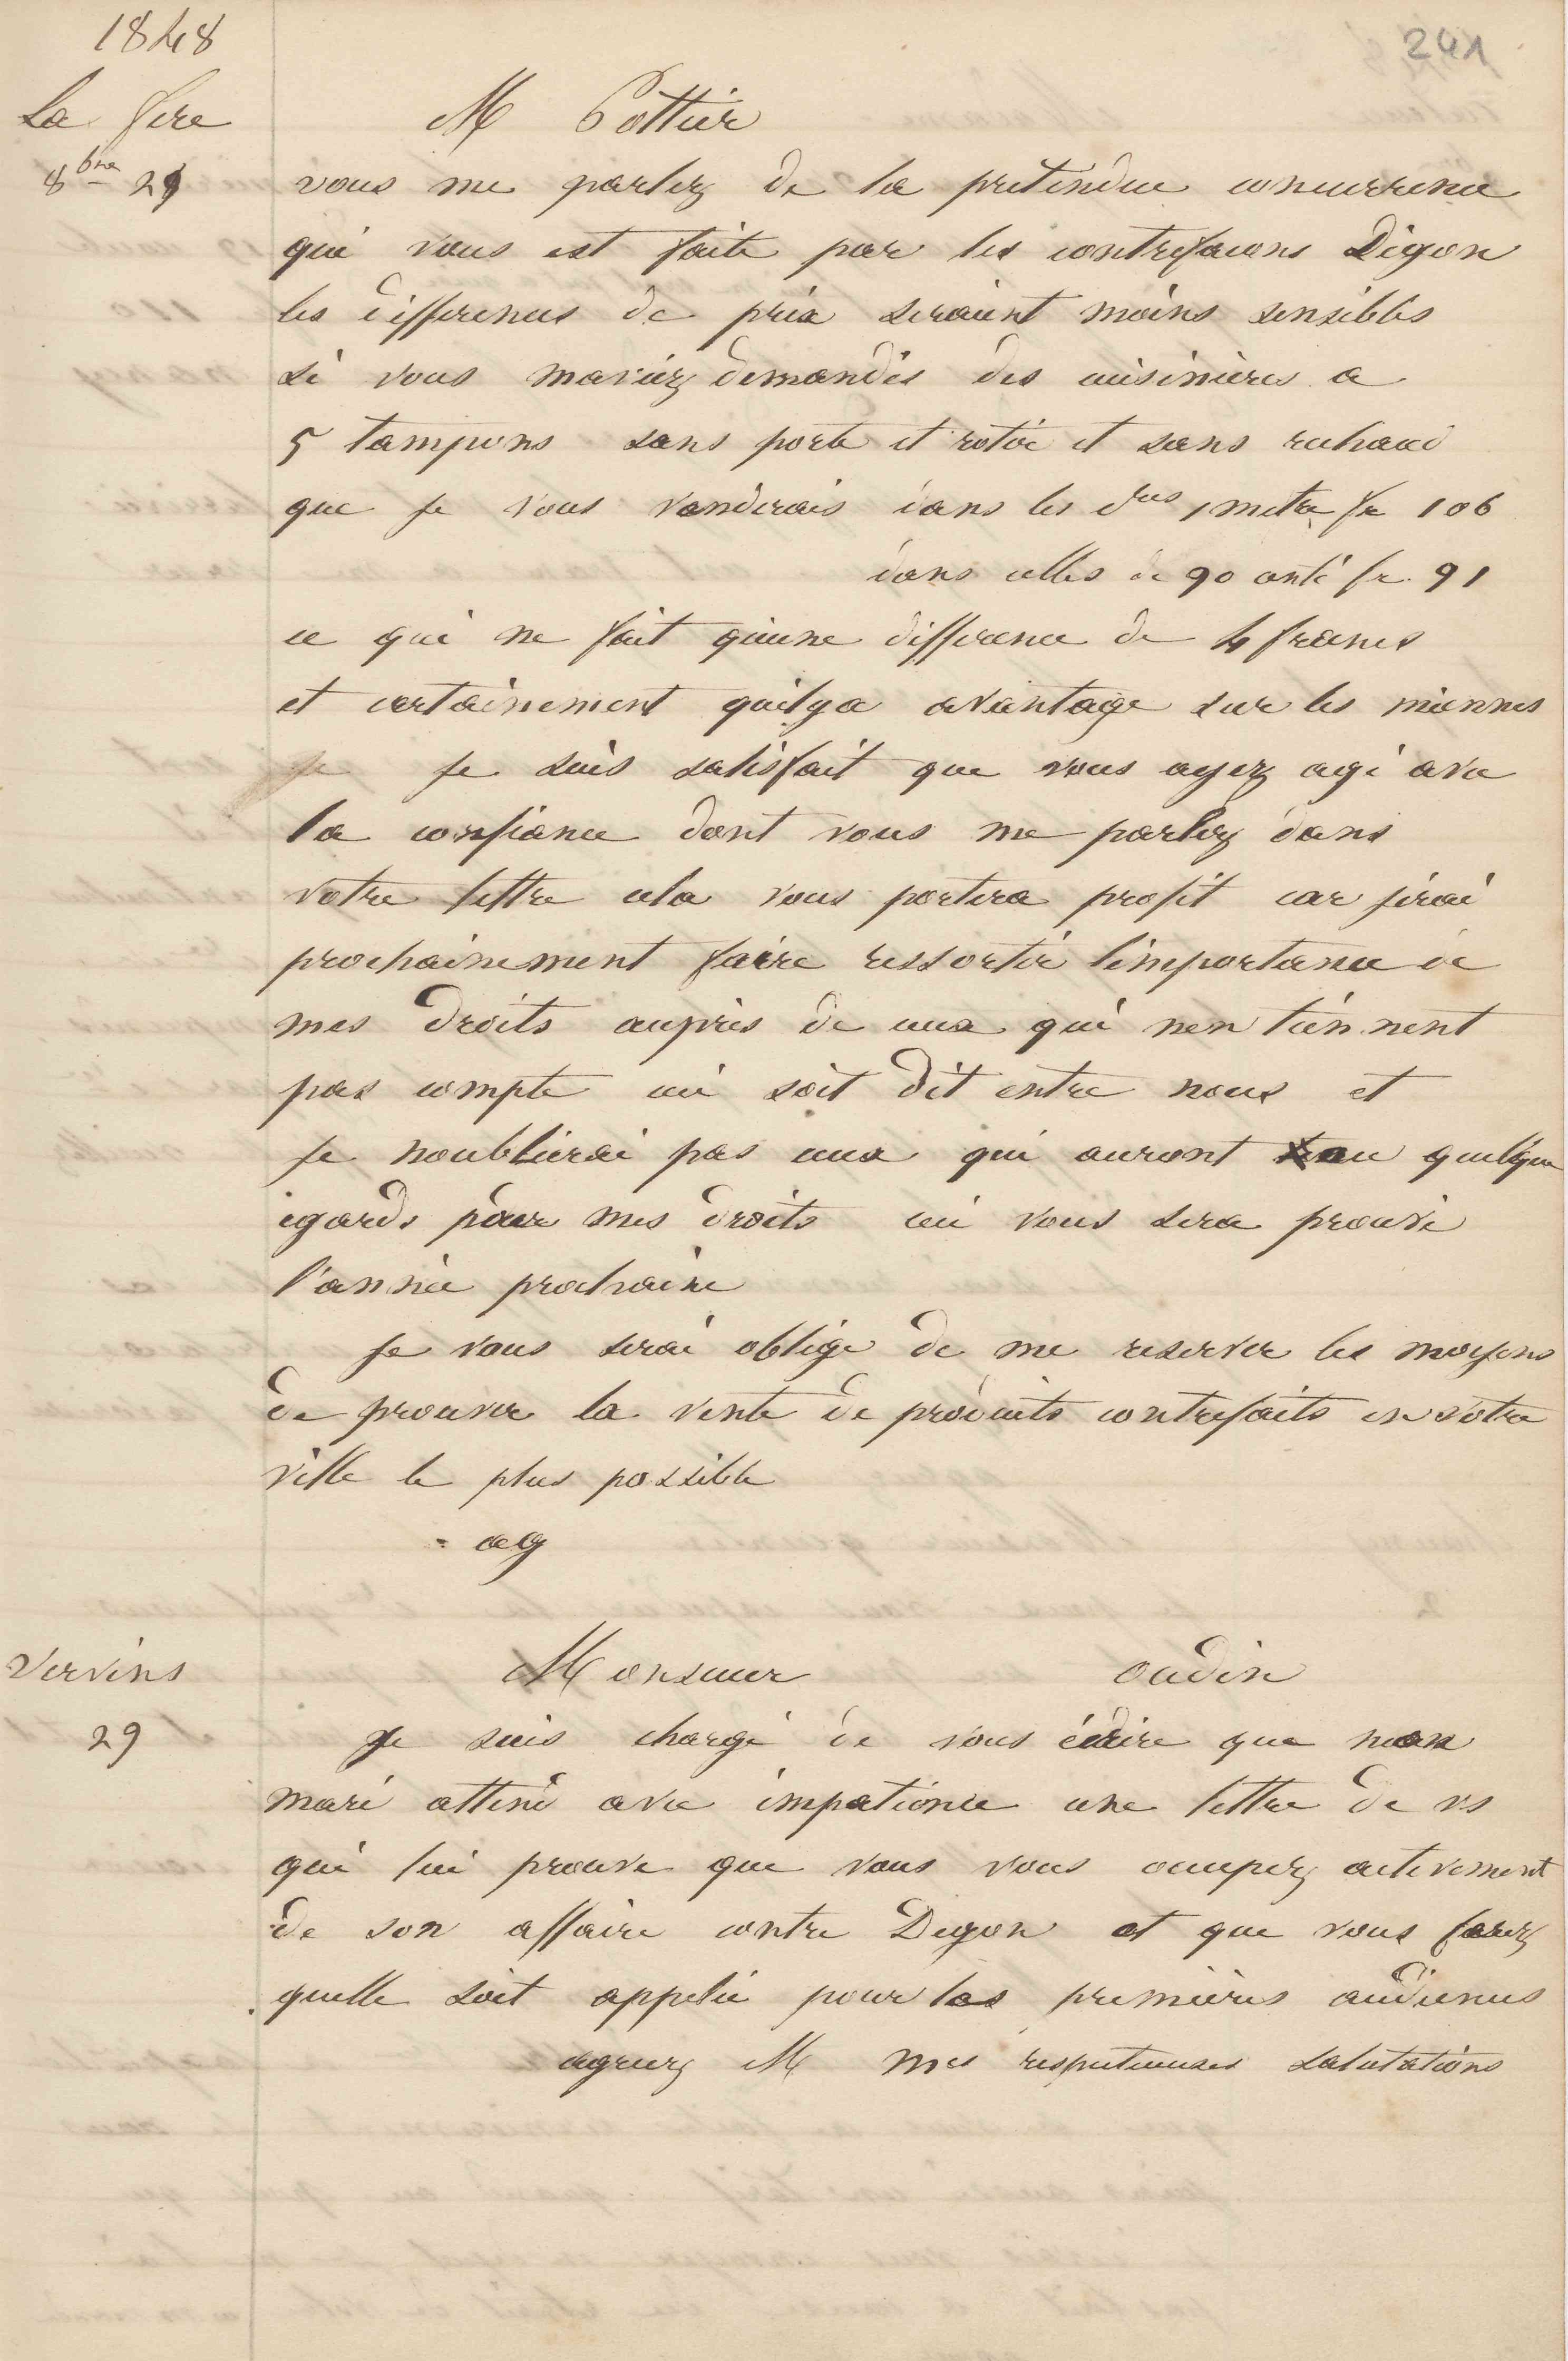 1848
241
La fere
M Pottier
8bre 29
vous me parlez de la pretendue concurrence
qui vous est faite par les contrefacons Degon
les differences de prix seraient moins sensibles
si vous maviez demandés des cuisinieres a
5 tampons sans porte et rotir et sans rechaud
que je vous vendrais dans les dres 1 metre fr 106
dans celles de 90 centi fr. 91
ce qui ne fait quune differance de 4 francs
et certainement quilya avantage sur les miennes
je suis satisfait que vous ayez agi avec
la confiance dont vous me parlez dans
votre lettre cela vous portera profit car jirai
prochainement faire ressortir limportance de
mes droits aupres de ceux qui nen tiennent
pas compte ceci soit dit entre nous et
je noublierai pas ceux qui auront eu quelque
egards pour mes droits ceci vous sera prouvé
l'année prochaine
je vous serai obligé de me reserver les moyens
de prouver la vente de produits contrefaits en votre
ville le plus possible
ag
Vervins
Monsieur oudin
29
je suis chargé de vous écrire que mon
mari attend avec impatience une lettre de vs
qui lui prouve que vous vous occupez activement
de son affaire contre Degon et que vous ferez
quelle soit appelée pour les premières audiences
agreez M mes respectueuses salutations